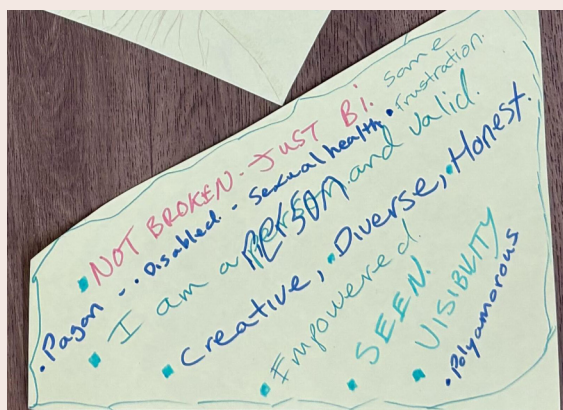 NOT BROKEN - JUST Bi.
some frustration.
Pagan - Disabled - Sexual health
I am a PERSON and valid.
Creative, Diverse, Honest.
Empowered.
SEEN!
VISIBILITY
Polyamorous